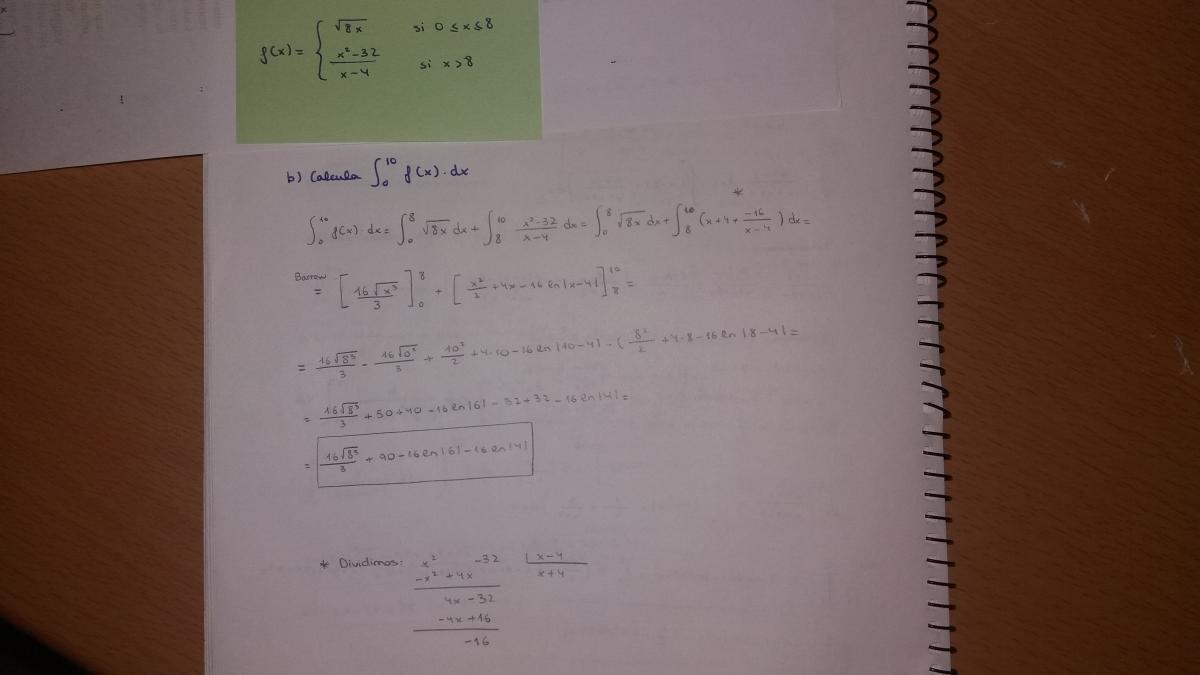 f(x) = { √8x si 0 ≤ x ≤ 8
(x²-32)/(x-4) si x > 8
b) Calcula ∫₀¹⁰ f(x)·dx
*
∫₀¹⁰ f(x)·dx = ∫₀⁸ √8x dx + ∫₈¹⁰ (x²-32)/(x-4) dx = ∫₀⁸ √8x dx + ∫₈¹⁰ (x+4+ (-16)/(x-4)) dx =
Barrow
= [16√x³/3]₀⁸ + [x²/2 + 4x - 16 ln|x-4|]₈¹⁰ =
= 16√8³/3 - 16√0³/3 + 10²/2 + 4·10 - 16 ln|10-4| - (8²/2 + 4·8 - 16 ln|8-4| =
= 16√8³/3 + 50 + 40 - 16 ln|6| - 32 + 32 - 16 ln|4| =
= 16√8³/3 + 90 - 16 ln|6| - 16 ln|4|
* Dividimos: x² -32 | x-4
-x² + 4x x+4
4x - 32
-4x + 16
-16